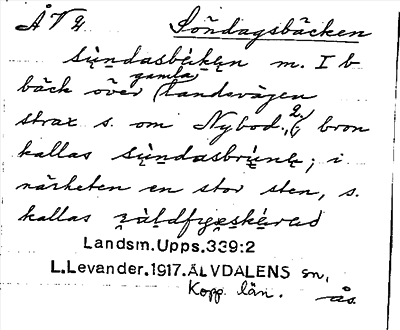 ÅV 2 Söndagsbäcken
sųndasbėkęn m. I b
bäck över gamla landsvägen
strax s. om Nybod. 2/ bron
kallas sųndasbrųnę; i
närheten en stor sten, s.
kallas
Landsm.Upps.339:2
L.Levander.1917.ÄLVDALENS sn,
Kopp. län. ås